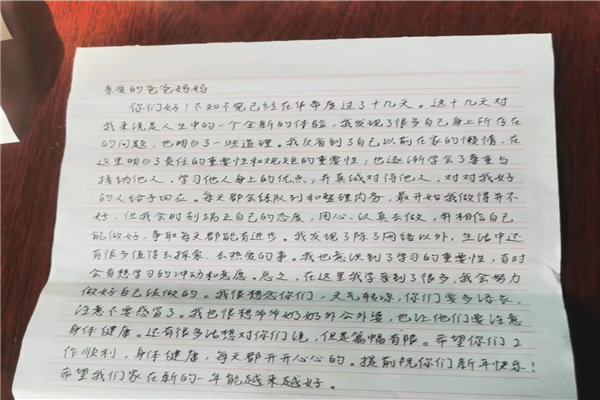 亲爱的爸爸妈妈:
你们好!不知不觉已经在华帝度过了十几天。这十几天对
我来说是人生中的一个全新的体验,我发现了很多自己身上所存在
的问题,也明白了一些道理。我反省到了自己以前在家的懒惰,在
这里明白了责任的重要性和规矩的重要性,也逐渐学会了尊重与
接纳他人,学习他人身上的优点,并真诚对待他人,对对我好
的人给予回应。每天都会练队列和整理内务,最开始我做得并不
好,但我会时刻端正自己的态度,用心、认真去做,并相信自己
能做好,争取每天都能有进步。我发现了除了网络以外,生活中还
有很多值得去探索、去热爱的事。我也意识到了学习的重要性,有时
会有想学习的冲动和意愿。总之,在这里我学到了很多,我会努力
做好自己该做的。我很想念你们,天气转凉,你们要多添衣,
注意不要感冒了。我也很想爷爷奶奶外公外婆,也让他们要注意
身体健康。还有很多话想对你们说,但是篇幅有限。希望你们工
作顺利,身体健康,每天都开开心心的。提前祝你们新年快乐!
希望我们家在新的一年能越来越好。